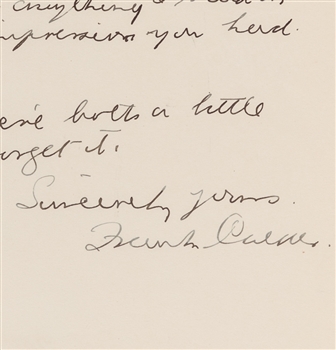 anything
impression you had.
both a little
forget it.
Sincerely yours.
Frank Calder.